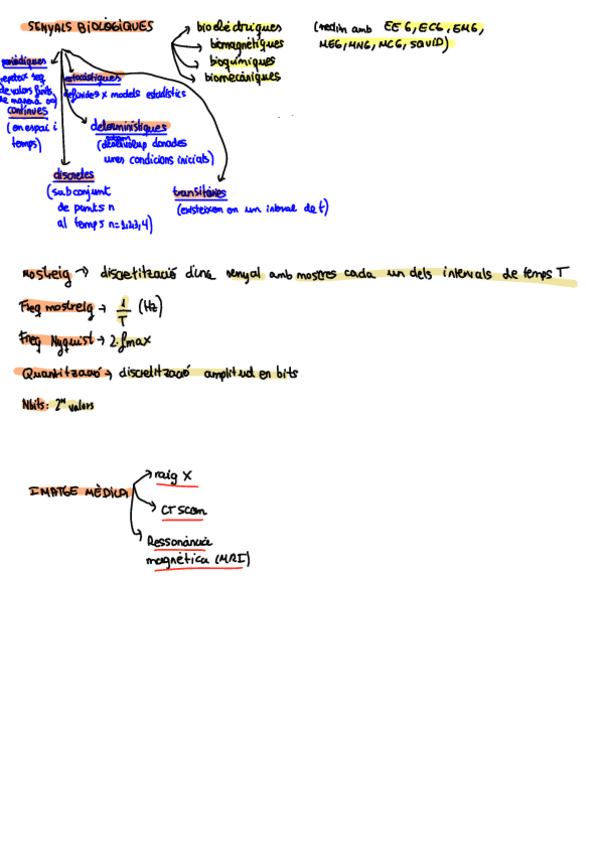 SENYALS BIOLÒGIQUES
bioelèctriques
biomagnètiques
bioquímiques
biomecàniques
(medim amb EEG, ECG, EMG,
MEG, MNG, MCG, SQUID)
periòdiques
de valors finits
de manera
continues
(en espai i
temps)
estocàstiques
definides x models estadístics
deterministiques
(desenvolup donades
unes condicions inicials)
discretes
(subconjunt
de punts n
al temps n=1,2,3,4)
transitòries
(existeixen en un interval de t)
Mostreig → discretització d'una senyal amb mostres cada un dels intervals de temps T
Freq mostreig → 1/T (Hz)
Freq Nyquist → 2·fmax
Quantització → discretització amplitud en bits
Nbits: 2ᴺ valors
IMATGE MÈDICA
raig X
CT scan
Ressonància
magnètica (MRI)